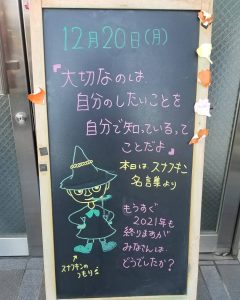 12月20日(月)
『大切なのは、
自分のしたいことを
自分で知っているって
ことだよ』
本日は スナフキン
名言集より
もうすぐ
2021年も
終りますが
みなさんは、
どうでしたか？
スナフキンの
つもりです